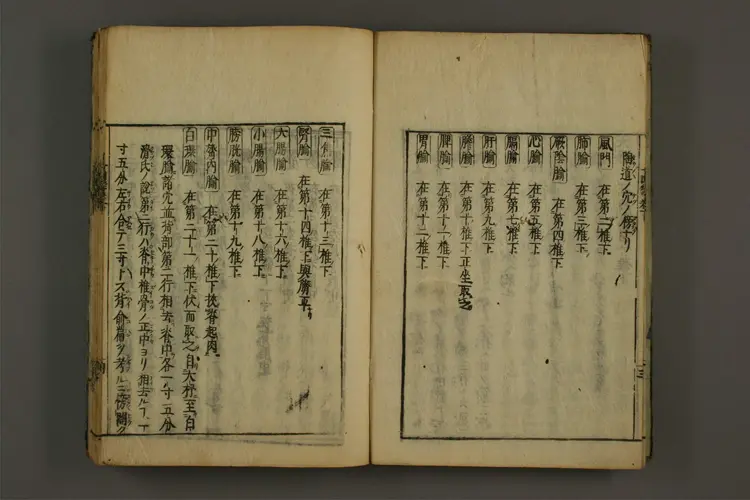 陶道ノ穴ノ傍ナリ
風門 在第二椎下
肺腧 在第三椎下
厥陰腧 在第四椎下
心腧 在第五椎下
膈腧 在第七椎下
肝腧 在第九椎下
膽腧 在第十椎下正坐取之
脾腧 在第十一椎下
胃腧 在第十二椎下
三焦腧 在第十三椎下
腎腧 在第十四椎下與臍平
大腸腧 在第十六椎下
小腸腧 在第十八椎下
膀胱腧 在第十九椎下
中膂内腧 在第二十椎下挾脊起肉
白環腧 在第二十一椎下伏而取之自大杼至白
環腧諸穴並背部第二行相去脊中各一寸五分
滑氏ノ說第二行ハ脊中椎骨ノ正中ヨリ相去ルコ一
寸五分左右合テ三寸トス背俞篇ヲ考ルニ